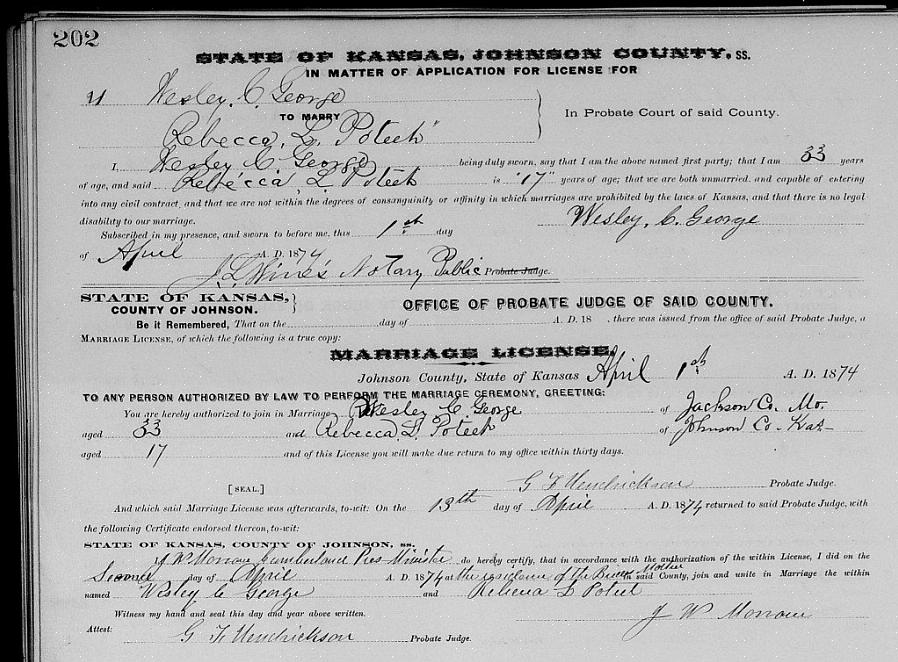 202
STATE OF KANSAS, JOHNSON COUNTY, ss.
IN MATTER OF APPLICATION FOR LICENSE FOR
Wesley. C. George
TO MARRY
In Probate Court of said County.
Rebecca, L. Poteet"
I, Wesley C George being duly sworn, say that I am the above named first party; that I am 33 years
of age, and said Rebecca, L. Poteet is "17" years of age; that we are both unmarried, and capable of entering
into any civil contract, and that we are not within the degrees of consanguinity or affinity in which marriages are prohibited by the laws of Kansas, and that there is no legal
disability to our marriage. Wesley, C. George
Subscribed in my presence, and sworn to before me, this 1st day
of April A. D. 1874
J. L. Wines Notary Public Probate Judge.
STATE OF KANSAS,
COUNTY OF JOHNSON.
OFFICE OF PROBATE JUDGE OF SAID COUNTY.
Be it Remembered, That on the day of A. D. 18 , there was issued from the office of said Probate Judge, a
MARRIAGE LICENSE, of which the following is a true copy:
MARRIAGE LICENSE.
Johnson County, State of Kansas April 1st A. D. 1874
TO ANY PERSON AUTHORIZED BY LAW TO PERFORM THE MARRIAGE CEREMONY, GREETING:
You are hereby authorized to join in Marriage Wesley C. George of Jackson Co. Mo.
aged 33 and Rebecca L. Poteet of Johnson Co- Kas-
aged 17 and of this License you will make due return to my office within thirty days.
[SEAL.] G F Hendrickson Probate Judge.
And which said Marriage License was afterwards, to-wit: On the 13th day of April A. D. 1874 returned to said Probate Judge, with
the following Certificate endorsed thereon, to-wit:
STATE OF KANSAS, COUNTY OF JOHNSON, ss.
J W Morrow Cumberland Pres Minister do hereby certify, that in accordance with the authorization of the within License, I did on the
Second day of April A. D. 1874 at the residence of the Brides Mother in said County, join and unite in Marriage the within
named Wesley C George and Rebecca L Poteet
Witness my hand and seal this day and year above written. J W Morrow
Attest: G F Hendrickson Probate Judge.